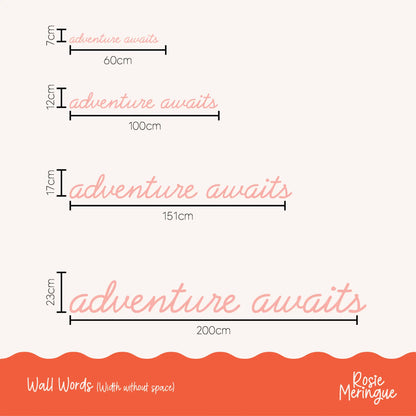 7cm
adventure awaits
60cm
12cm
adventure awaits
100cm
17cm
adventure awaits
151cm
23cm
adventure awaits
200cm
Wall Words (Width without space)
Rosie
Meringue